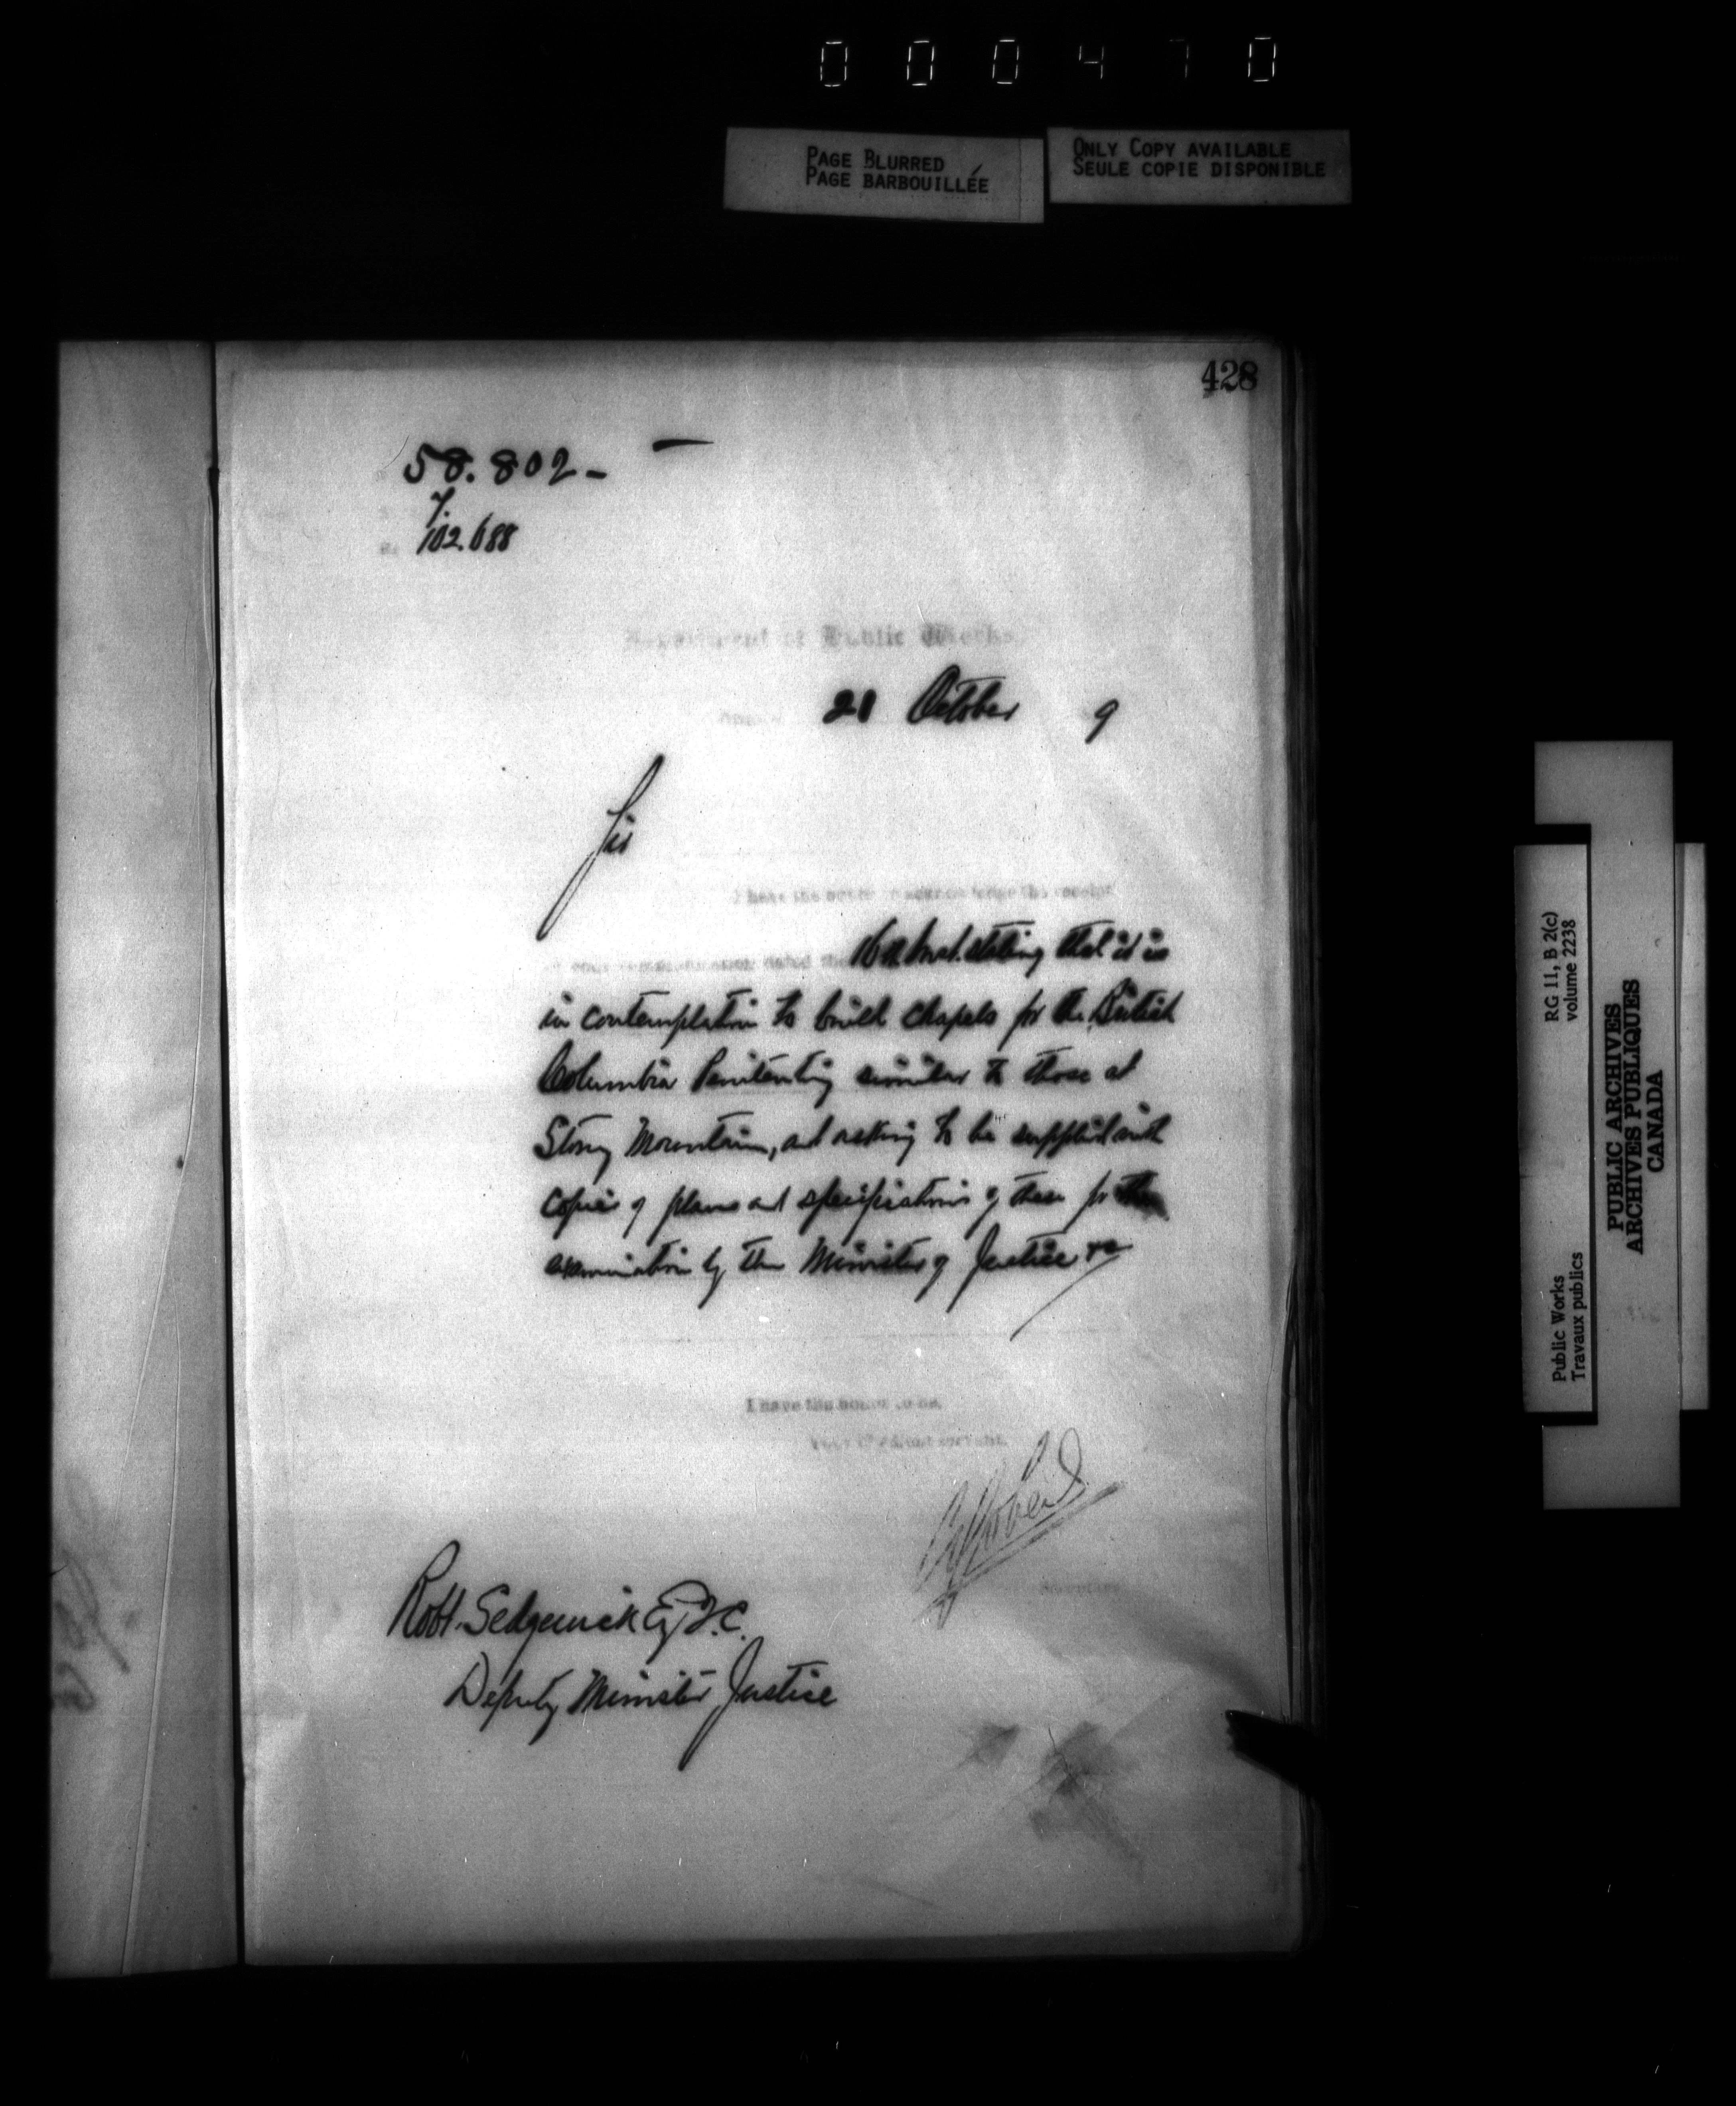 000470
PAGE BLURRED
PAGE BARBOUILLÉE
ONLY COPY AVAILABLE
SEULE COPIE DISPONIBLE
428
58.802-
102.688
Department of Public Works.
21 October 9
Sir
I have the honor to acknowledge the receipt
of your communication dated the 16th Inst. stating that it is
in contemplation to build chapels for the British
Columbia Penitentiary similar to those at
Stony Mountain, and asking to be supplied with
copies of plans and specifications of these for the
examination by the Minister of Justice &c
I have the honor to be,
Your obedient servant,
Secretary
Robt. Sedgewick Esq Q.C.
Deputy Minister Justice
RG 11, B 2(c)
volume 2238
Public Works
Travaux publics
PUBLIC ARCHIVES
ARCHIVES PUBLIQUES
CANADA